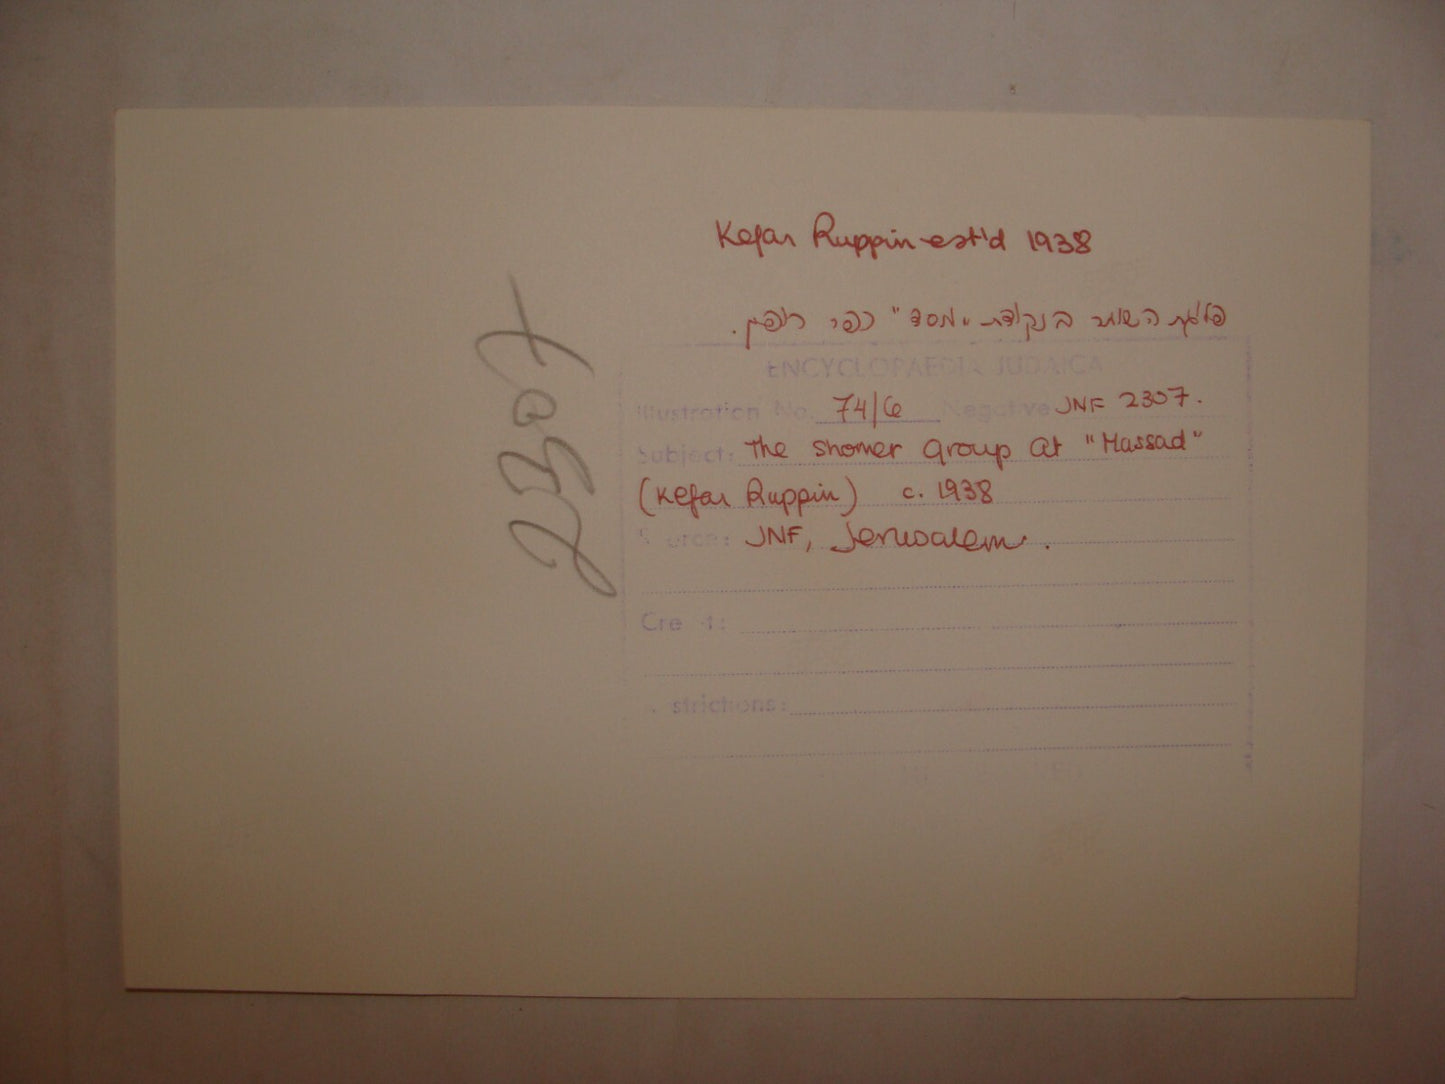 Kefar Ruppin-est'd 1938
פלוגת השומר בנקודת "מסד" כפר רופין.
ENCYCLOPAEDIA JUDAICA
Illustration No. 74/6 Negative JNF 2307.
Subject: The shomer group at "Massad"
(Kefar Ruppin) c. 1938
Source: JNF, Jerusalem.
Credit:
strictions:
2307